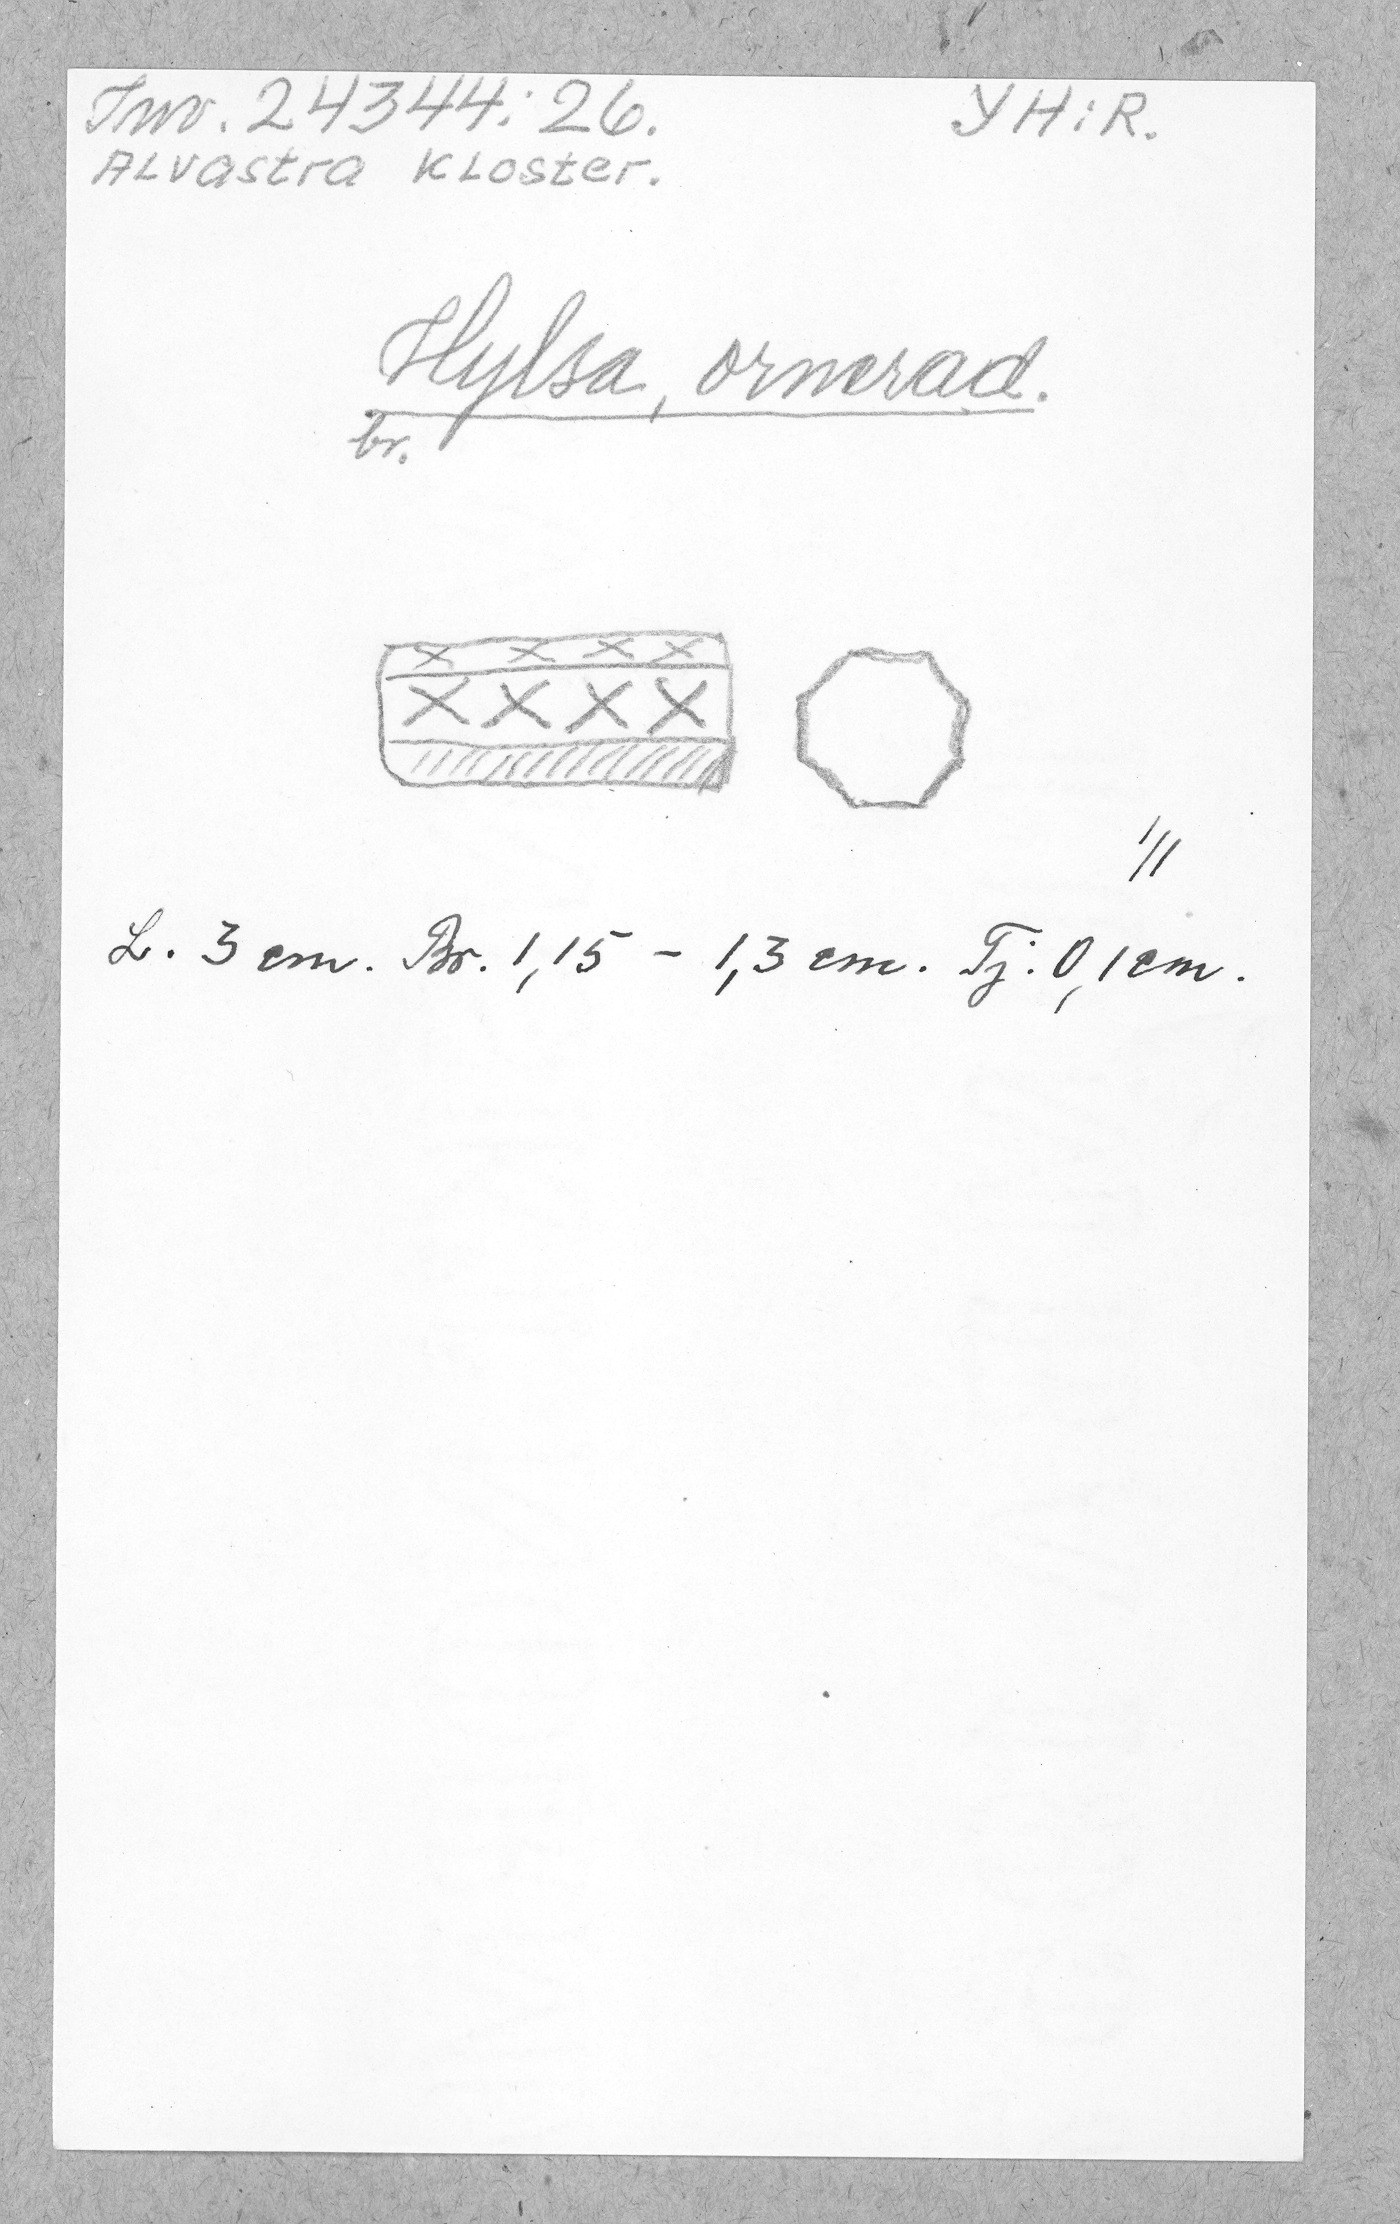 Inv. 24344:26. YH:R.
Alvastra Kloster.
Hylsa, ornerad.
br.
1/1
L. 3 cm. Br. 1,15 - 1,3 cm. Tj: 0,1 cm.